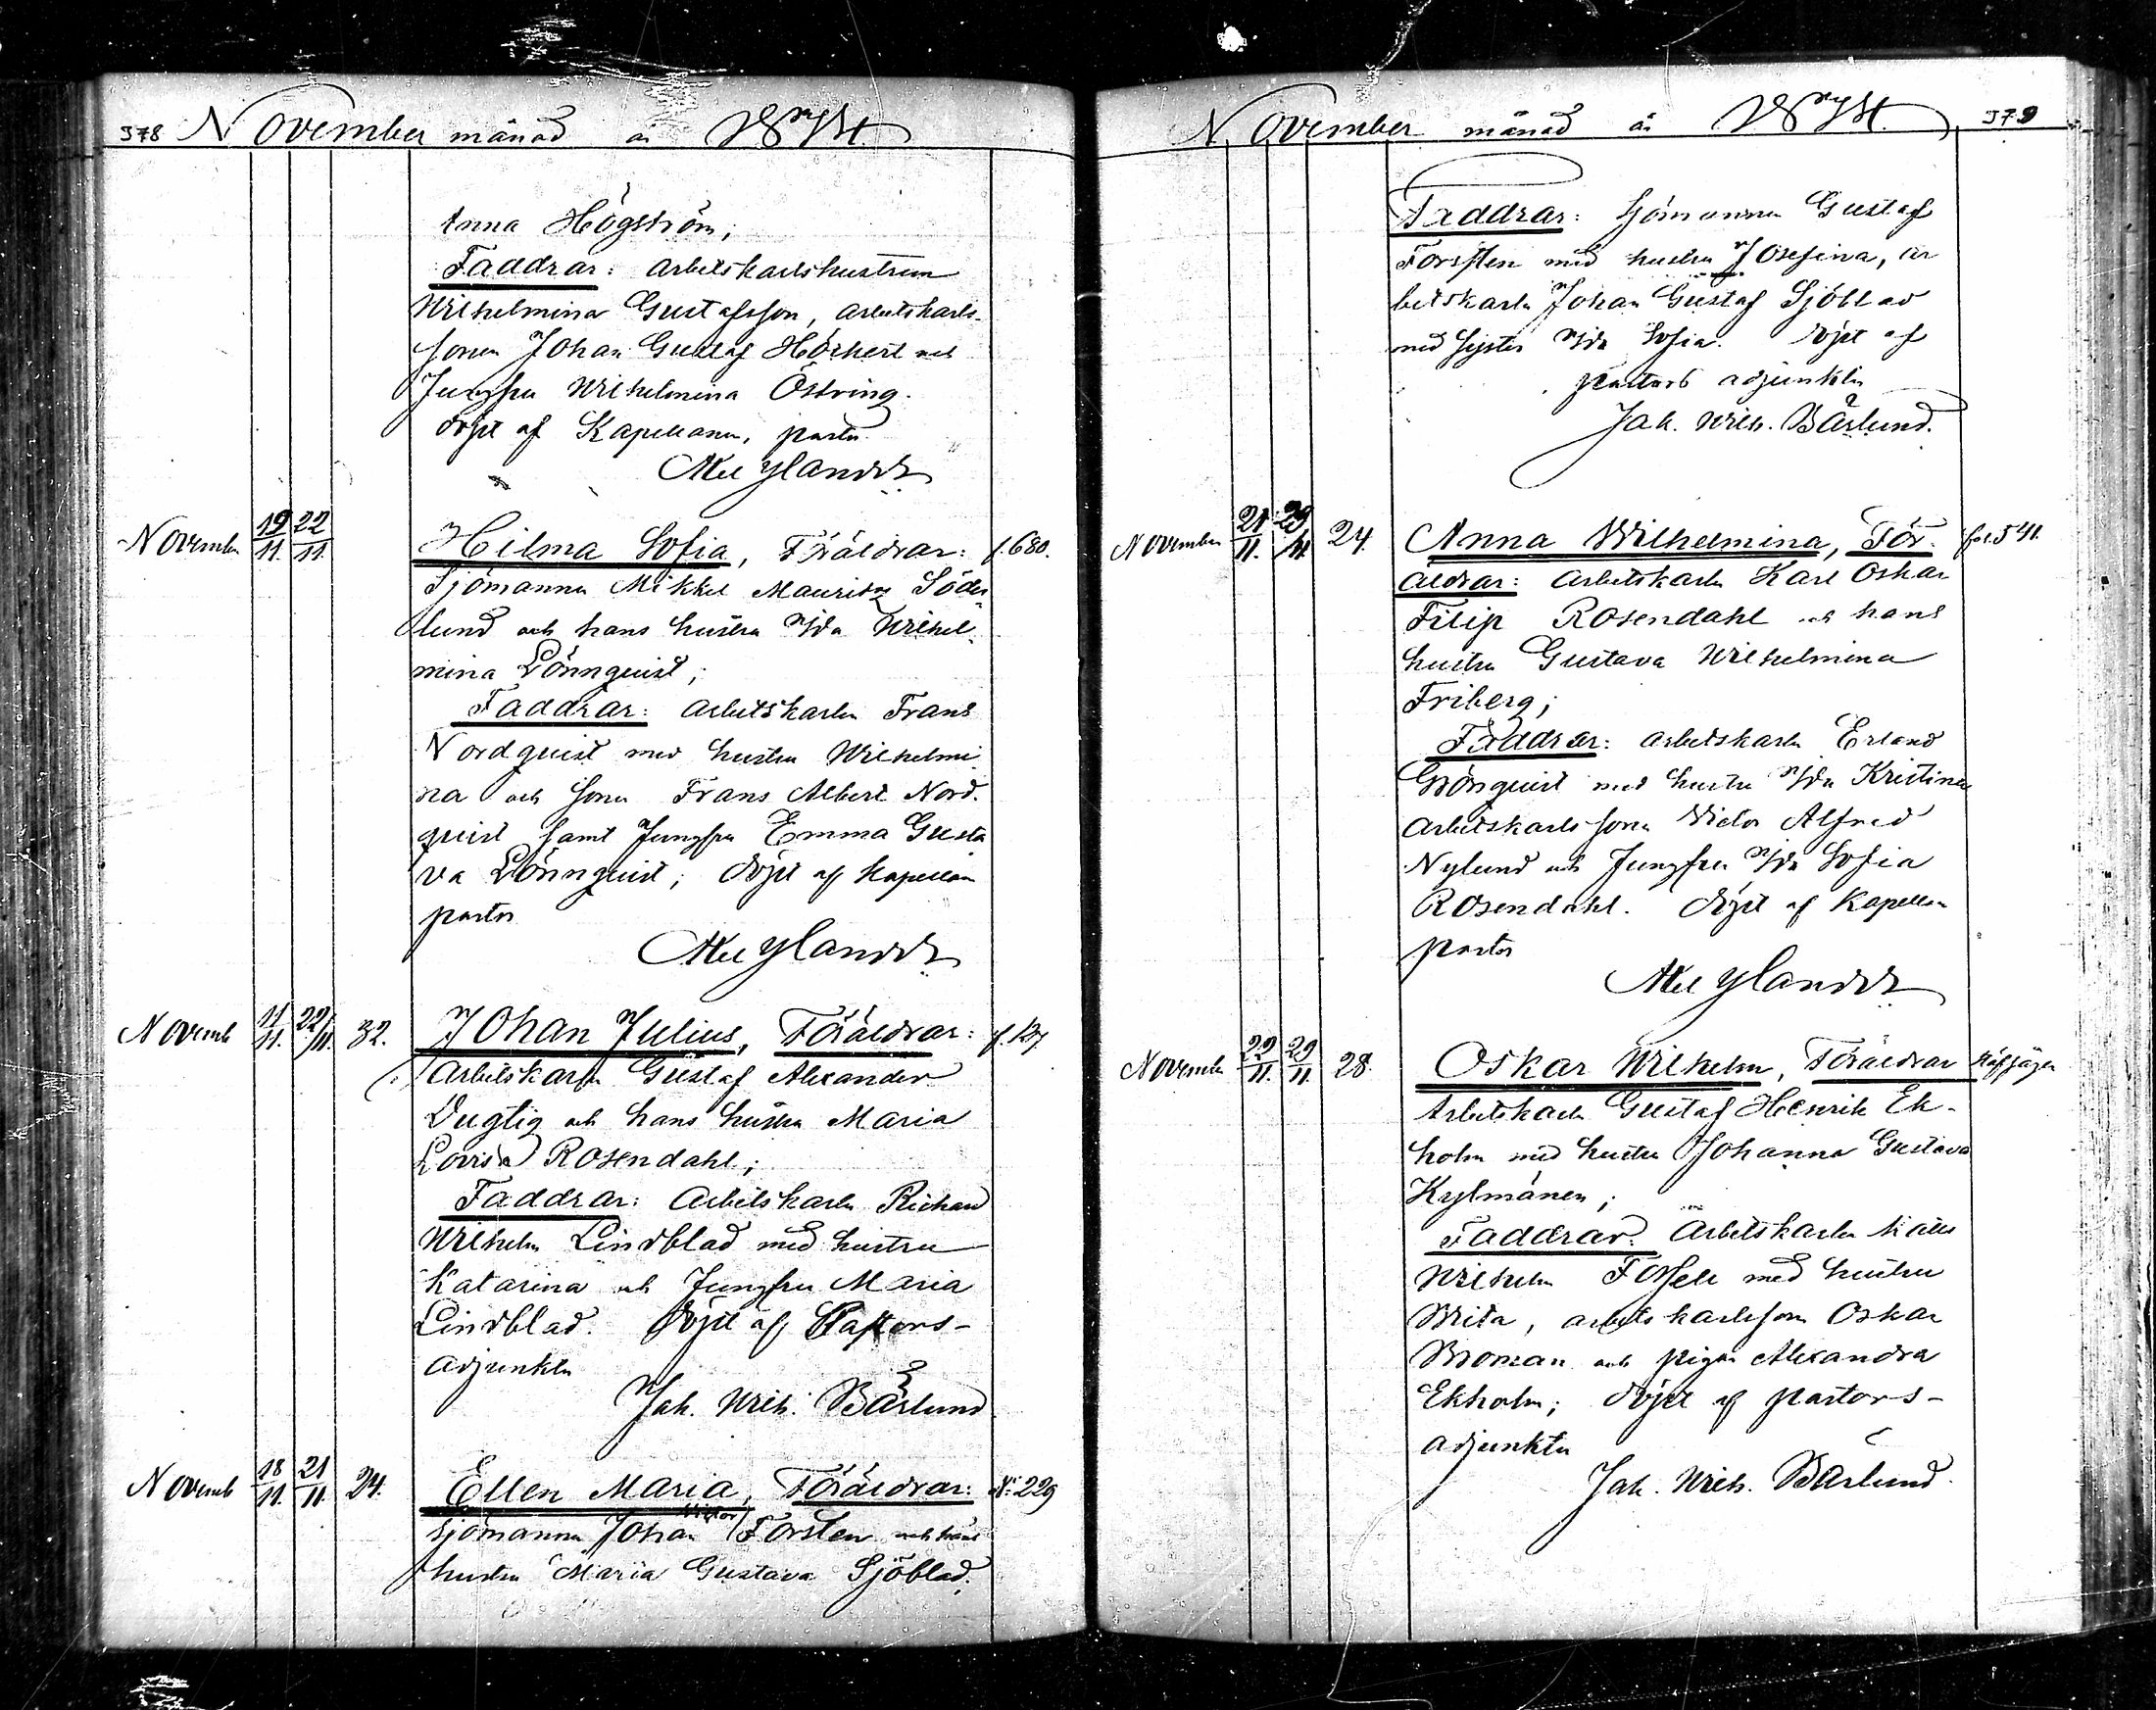 378 November månad år
Anna Högström;
Faddrar: arbetskarlshustrun
Wilhelmina Gustafsson, arbetskarls-
sonen Johan Gustaf Hörkert och
Jungfru Wilhelmina Östring.
döpt af Kapellanen, pastor
November 19/11. 22/11. Hilma Sofia, Föräldrar: f. 680.
Sjömannen Mikkel Mauritz Söder
lund och hans hustru Ida Wilhel-
mina Lönnquist;
Faddrar: arbetskarlen Frans
Nordquist med hustru Wilhelmi
na och sonen Frans Albert Nord-
quist samt Jungfru Emma Gusta
va Lönnquist; döpt af Kapellan
pastor
Novemb 11/11. 22/11. 32. Johan Julius, Föräldrar:
Arbetskarlen Gustaf Alexander
Dugtig och hans hustru Maria
Lovisa Rosendahl;
Faddrar: Arbetskarlen Richard
Wilhelm Lindblad med hustru
Katarina och Jungfru Maria
Lindblad. döpt af Pastors-
adjunkten
Jak. Wilh. Bärlund
Novemb 18/11. 21/11. 24. Ellen Maria, Föräldrar: No 229
Sjömannen Johan Viktor Forsten och hans
hustru Maria Gustava Sjöblad.
November månad år 379
Faddrar: Sjömannen Gustaf
Forsten med hustru Josefina, ar
betskarlen Johan Gustaf Sjöblad
med syster Ida Sofia. döpt af
pastors adjunkten
Jak. Wilh. Bärlund.
November 21/11. 29/11. 24. Anna Wilhelmina, För- fol. 541.
äldrar: arbetskarlen Karl Oskar
Filip Rosendahl och hans
hustru Gustava Wilhelmina
Friberg;
Faddrar: arbetskarlen Erland
Grönquist med hustru Ida Kristina
arbetskarlssonen Victor Alfred
Nylund och Jungfru Ida Sofia
Rosendahl. döpt af Kapellan
pastor
November 22/11. 29/11. 28. Oskar Wilhelm, Föräldrar
Arbetskarlen Gustaf Henrik Ek-
holm med hustru Johanna Gustava
Kylmänen;
Faddrar: Arbetskarlen Kalle
Wilhelm Forsell med hustru
Brita, arbetskarlsson Oskar
Broman och pigan Alexandra
Ekholm; döpt af pastors-
adjunkten
Jak. Wilh. Bärlund.